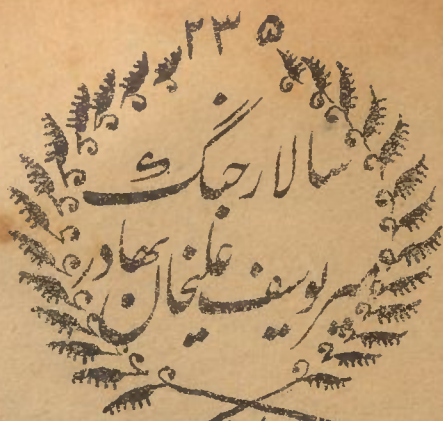 ۲۳۵
سالار جنگ
میر یوسف علیخان بهادر